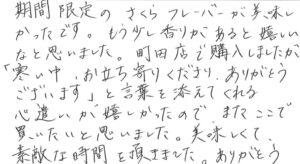 期間限定の さくら フレーバーが美味し
かったです。もう少し香りがあると嬉しい
なと思いました。町田店で購入しましたが
「寒い中、お立ち寄りくださり、ありがとう
ございます」と言葉を添えてくれる
心遣いが嬉しかったので、またここで
買いたいと思いました。美味しくて、
素敵な時間を頂きました。ありがとう